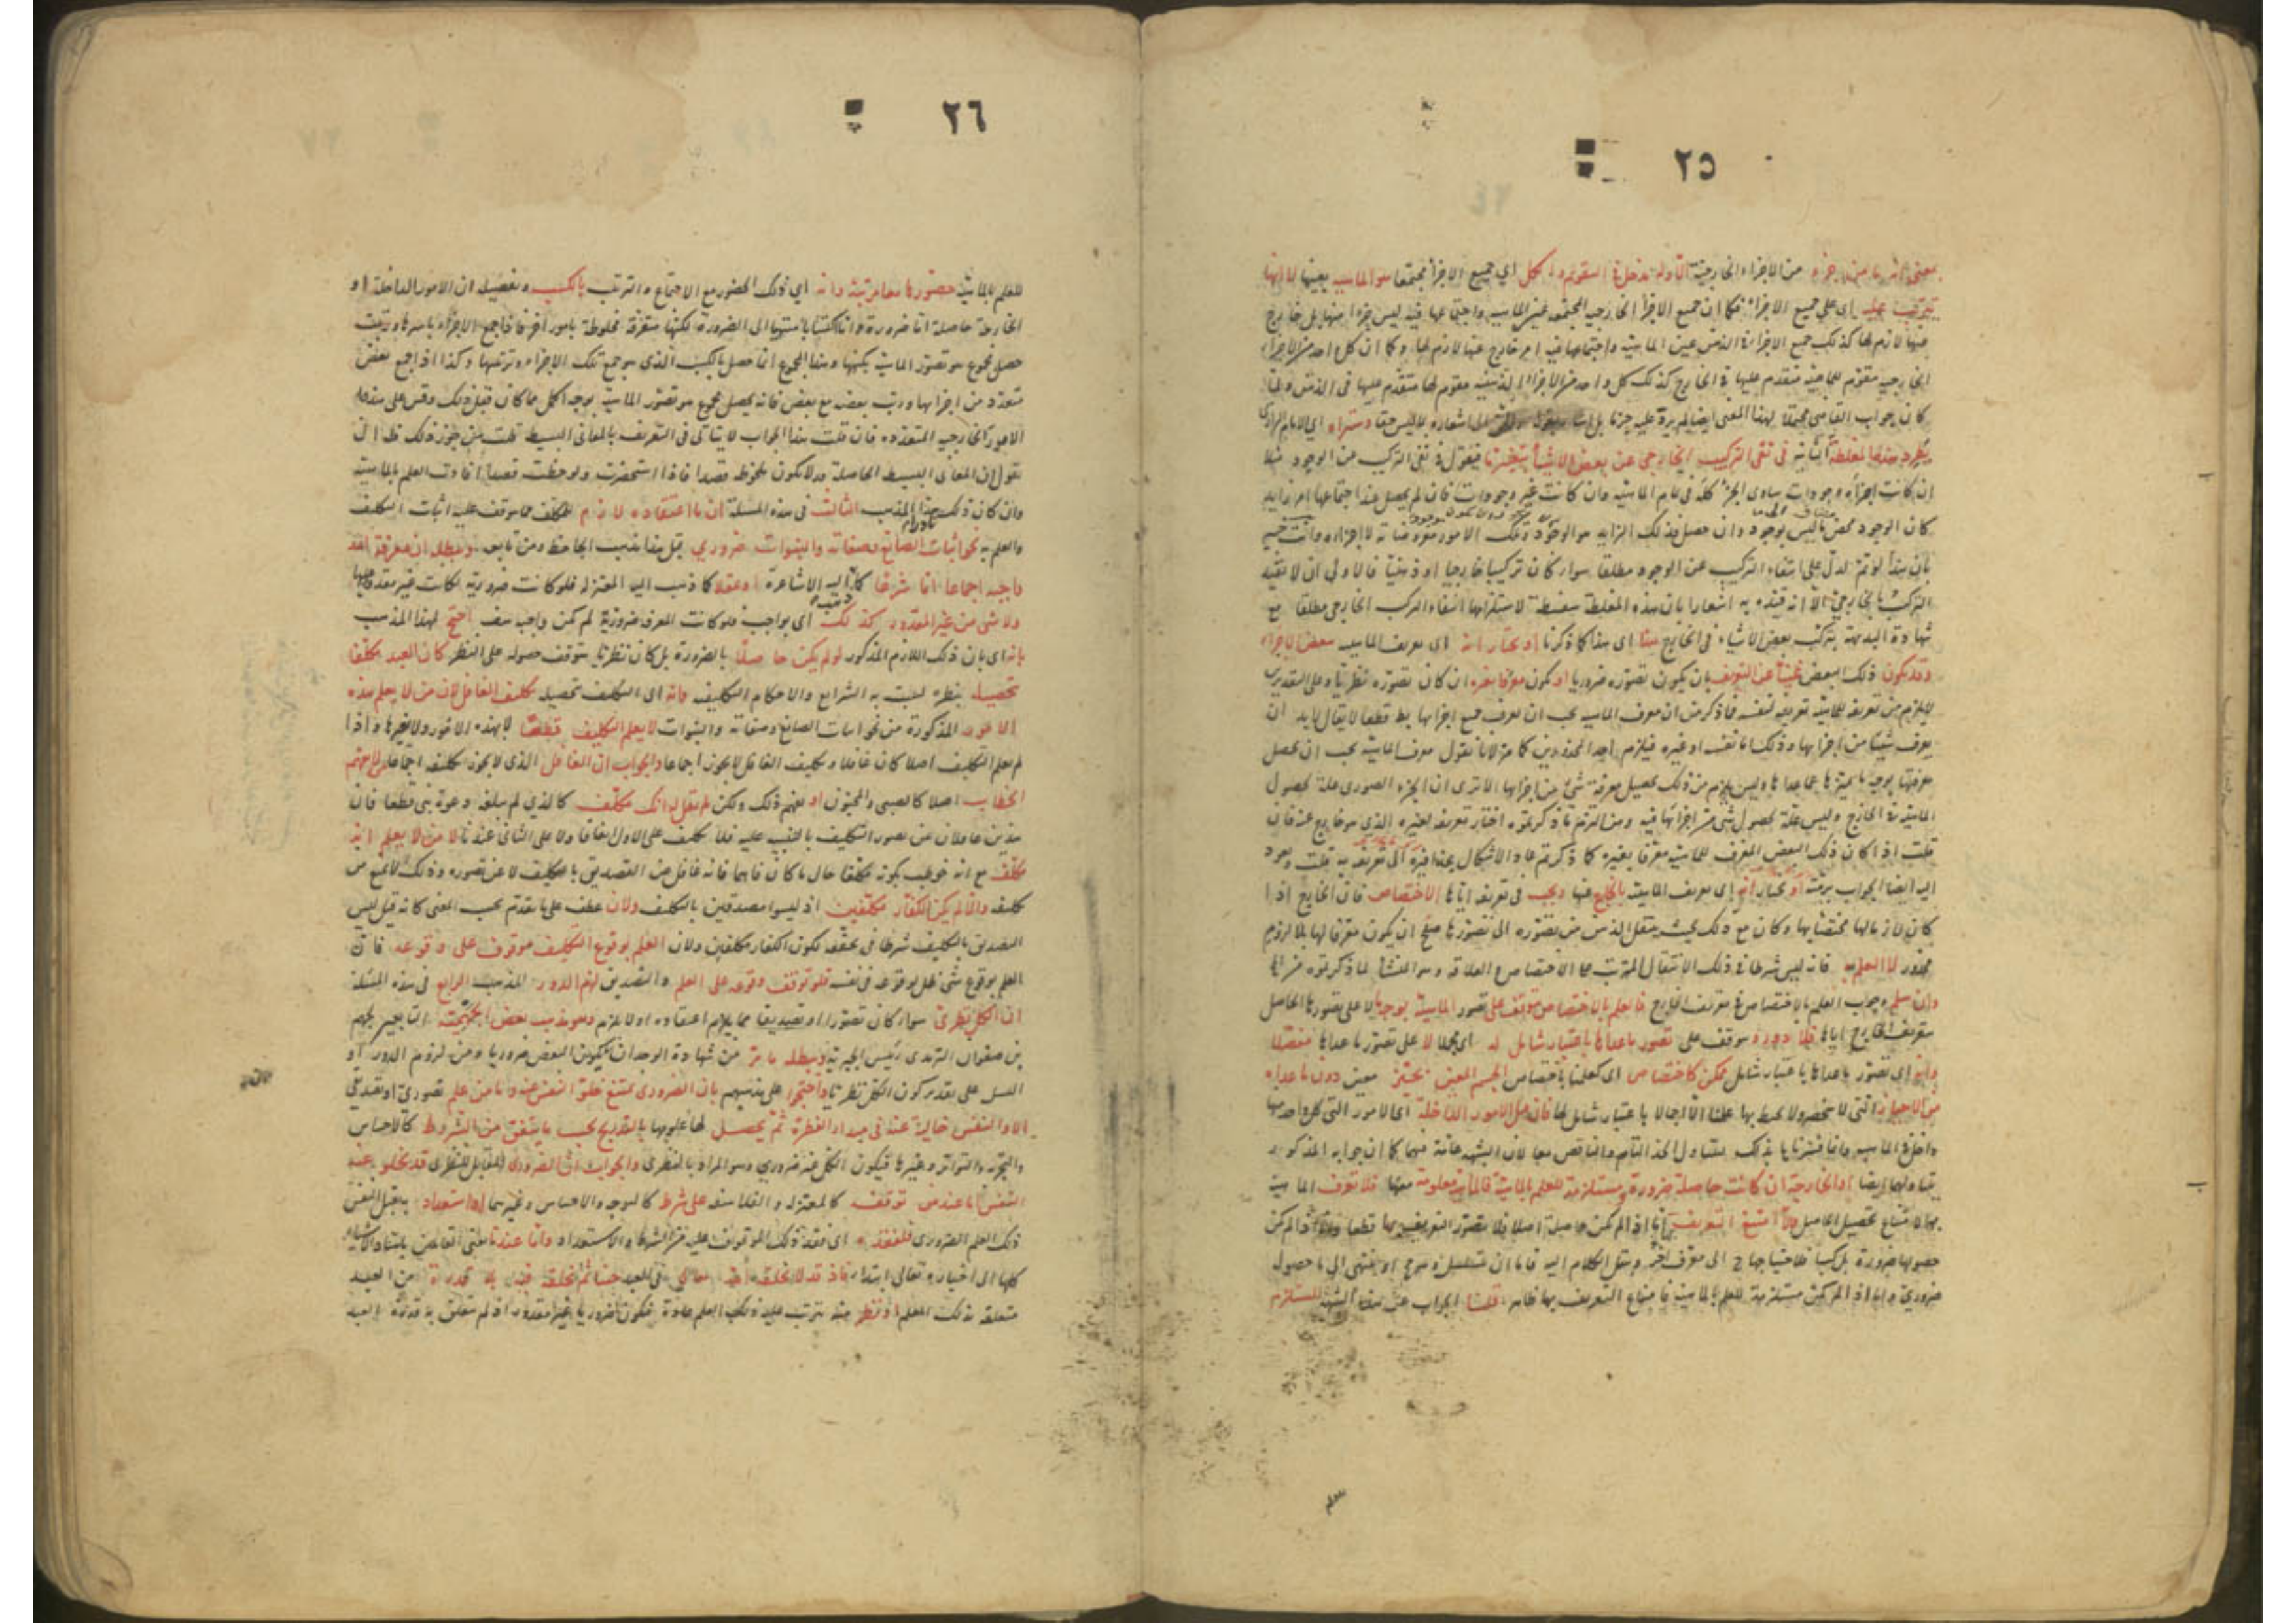 ٢٥
من الاجزاء الخارجية له مدخل في التقويم والكل اي جميع الاجزاء مجتمعا هو الماهية بعينها لا انها
تترتب عليه اي على جميع الاجزاء فكما ان جميع الاجزاء الخارجية المجتمعة عين الماهية واجتماعها فيه ليس جزءا منها بل خارج
عنها لازم لها كذلك جميع الاجزاء في الذهن عين الماهية واجتماعها فيه امر خارج عنها لازم لها وكما ان كل واحد من الاجزاء
الخارجية مقوم للماهية متقدم عليها في الخارج كذلك كل واحد من الاجزاء الذهنية مقوم لها متقدم عليها في الذهن ولما
كان جواب القاضي محتملا لهذا المعنى ايضا لم يرد عليه جزما بل اشار بقوله الى اشعاره بما ليس حقا وستراه اي الامام الرازي
يطرد هذه المغلطة في نفي التركيب الخارجي عن بعض الاشياء بتغييرها فيقول في نفي التركيب عن الوجود مثلا
ان كانت اجزاؤه وجودات يساوي الجزء كله في تمام الماهية وان كانت غير وجودات فان لم يحصل عند اجتماعها امر زايد
كان الوجود محض ما ليس بوجود وان حصل فذلك الزايد هو الوجود وتلك الامور معروضاته لا اجزاؤه وانت خبير
بان هذا لو تم لدل على انتفاء التركيب عن الوجود مطلقا سواء كان تركيبا خارجيا او ذهنيا فالاولى ان لا يقيد
التركيب بالخارجي الا انه قيده به اشعارا بان هذه المغلطة سفسطة لاستلزامها انتفاء المركب الخارجي مطلقا مع
شهادة البديهة بتركب بعض الاشياء في الخارج هذا اي هذا كما ذكرنا او نختار انه اي تعريف الماهية ببعض الاجزاء
وقد يكون ذلك البعض غنيا عن التعريف بان يكون تصوره ضروريا او يكون معرفا بغيره ان كان تصوره نظريا وعلى التقديرين
لا يلزم من تعريفه للماهية تعريفه لنفسه فما ذكر من ان معرف الماهية يجب ان يعرف جميع اجزائها بط قطعا لا يقال لابد ان
يعرف شيئا من اجزائها وذلك اما نفسه او غيره فيلزم احد المحذورين كما مر لانا نقول معرف الماهية يجب ان يحصل
معرفتها بوجه يميزها عما عداها وليس يلزم من ذلك تحصيل معرفة شئ من اجزائها الا ترى ان الجزء الصوري علة لحصول
الماهية في الخارج وليس علة لحصول شئ من اجزائها فيه ومن التزم ما ذكرتموه اختار تعريفه لغيره الذي هو خارج عنه فان
قلت اذا كان ذلك البعض المعرف للماهية معرفا بغيره كما ذكرتم عاد الاشكال بحذافيره الى تعريفه به قلت ويعود
اليه ايضا الجواب برمته او نختار انه اي تعريف الماهية بالخارج عنها ويجب في تعريفه اياها الاختصاص فان الخارج اذا
كان لازما لها مختصا بها وكان مع ذلك بحيث ينتقل الذهن من تصوره الى تصورها صلح ان يكون معرفا لها بلا لزوم
محذور لا العلم به فانه ليس شرطا في ذلك الانتقال المترتب على الاختصاص
وان سلم وجوب العلم بالاختصاص في تعريف الخارج فالعلم بالاختصاص يتوقف على تصور الماهية بوجه ما لا على تصورها الحاصل
بتعريف الخارج اياها فلا دور ويتوقف على تصور ما عداها باعتبار شامل له اي مجملا لا على تصور ما عداها مفصلا
وانه اي تصور ما عداها باعتبار شامل ممكن كاختصاص اي كعلمنا باختصاص الجسم المعين بحيز معين دون ما عداه
من الاحياز التي لا تنحصر ولا يحيط بها علمنا الا اجمالا باعتبار شامل لها فان قيل الامور الداخلة اي الامور التي كل واحد منها
داخل في الماهية وانما فسرناها بذلك ليتناول الحد التام والناقص معا لان الشبهة عامة فيهما كما ان جوابه المذكور
يتناولهما ايضا او الخارجة ان كانت حاصلة ضرورة مستلزمة للعلم بالماهية فالماهية معلومة معها فلا تعرف الماهية
بها لامتناع تحصيل الحاصل والا امتنع التعريف بها اما اذا لم يكن حاصلة اصلا فلا يتصور التعريف بها قطعا واما اذا لم يكن
حصولها ضرورة بل كسبا فلاحتياجها ح الى معرف اخر وينتقل الكلام اليه فاما ان يتسلسل وهو مح او ينتهي الى ما حصوله
ضروري واما اذا لم يكن مستلزمة للعلم بالماهية فامتناع التعريف بها ظاهر قلنا الجواب عن هذه الشبهة المستلزم
٢٦
للعلم بالماهية حضورها معا مرتبة وانه اي ذلك الحضور مع الاجتماع والترتب بالكسب وتفصيله ان الامور الداخلة او
الخارجة حاصلة اما ضرورة واما اكتسابا منتهيا الى الضرورة لكنها متفرقة مخلوطة بامور اخر فاذا جمع الاجزاء باسرها ورتبت
حصل مجموع هو تصور الماهية بكنهها وهذا المجموع انما حصل بالكسب الذي هو جمع تلك الاجزاء وترتيبها وكذا اذا جمع بعض
متعدد من اجزائها ورتب بعضه مع بعض فانه يحصل مجموع هو تصور الماهية بوجه اكمل مما كان قبل ذلك وقس على هذا
الامور الخارجية المتعددة فان قلت هذا الجواب لا يتأتى في التعريف بالمعاني البسيطة قلت من جوز ذلك فله ان
يقول ان المعاني البسيطة الحاصلة قد لا تكون ملحوظة قصدا فاذا استحضرت ولوحظت قصدا افادت العلم بالماهية
وان كان ذلك نادرا المذهب الثالث في هذه المسئلة ان ما اعتقاده لازم للمكلف مما يتوقف عليه اثبات التكليف
والعلم به نحو اثبات الصانع وصفاته والنبوات ضروري قيل هذا مذهب الجاحظ ومن تابعه ويبطله ان معرفة الله
واجبة اجماعا اما شرعا كما ذهب اليه الاشاعرة او عقلا كما ذهب اليه المعتزلة فلو كانت ضرورية لكانت غير مقدور عليها
ولا شئ من غير المقدور كذلك اي بواجب فلو كانت المعرفة ضرورية لم تكن واجبة هف احتج لهذا المذهب
بانه اي بان ذلك اللازم المذكور لو لم يكن حاصلا بالضرورة بل كان نظريا يتوقف حصوله على النظر كان العبد مكلفا
بتحصيله بنظره ليثبت به الشرايع والاحكام التكليفية وانه اي التكليف بتحصيله تكليف الغافل لان من لا يعلم هذه
الامور المذكورة من نحو اثبات الصانع وصفاته والنبوات لا يعلم التكليف قطعا لا بهذه الامور ولا بغيرها واذا
لم يعلم التكليف اصلا كان غافلا وتكليف الغافل لا يجوز اجماعا والجواب ان الغافل الذي لا يجوز تكليفه اجماعا من لا يفهم
الخطاب اصلا كالصبي والمجنون او يفهم ذلك ولكن لم يقل له انك مكلف كالذي لم يبلغه دعوة نبي قطعا فان
هذين غافلان عن تصور التكليف بالتنبيه عليه فلا تكليف على الاول اتفاقا ولا على الثاني عندنا لا من لا يعلم انه
مكلف مع انه خوطب بكونه مكلفا حال ما كان فاهما فانه غافل عن التصديق بالتكليف لا عن تصوره وذلك لا يمنع من
تكليفه والا لم يكن الكفار مكلفين اذ ليسوا مصدقين بالتكليف ولان عطف على ما تقدم بحسب المعنى كانه قيل ليس
التصديق بالتكليف شرطا في تحققه لكون الكفار مكلفين ولان العلم بوقوع التكليف موقوف على وقوعه فان
العلم بوقوع شئ ظل لوقوعه في نفسه فلو توقف وقوعه على العلم والتصديق لزم الدور المذهب الرابع في هذه المسئلة
ان الكل نظري سواء كان تصورا او تصديقا مما يلزم اعتقاده او لا يلزم وهو مذهب بعض الجهمية التابعين لجهم
بن صفوان الترمدي رئيس الجبرية ويبطله ما مر من شهادة الوجدان بكون البعض ضروريا ومن لزوم الدور او
التسلسل على تقدير كون الكل نظريا واحتجوا على مذهبهم بان الضروري يمتنع خلو النفس عنه وما من علم تصوري او تصديقي
الا والنفس خالية عنه في مبداء الفطرة ثم يحصل لها علومها بالتدريج بحسب ما يتفق من الشروط كالاحساس
والتجربة والتواتر وغيرها فيكون الكل غير ضروري وهو المراد بالنظري والجواب ان الضروري المقابل للنظري قد يخلو عنه
النفس اما عند من توقفه كالمعتزلة والفلاسفة على شرط كالتوجه والاحساس وغيرهما او استعداد به يقبل النفس
ذلك العلم الضروري فلفقده اي فقد ذلك الموقوف عليه من الشرط والاستعداد واما عندنا يعني القائلين باستناد الاشياء
كلها الى اختياره تعالى ابتداء فاذ قد لا يخلقه الله تعالى في العبد حينا ثم يخلقه فيه بلا قدرة من العبد
متعلقة بذلك العلم او نظر منه يترتب عليه ذلك العلم عادة فيكون ضروريا غير مقدور اذ لم يتعلق به قدرة العبد